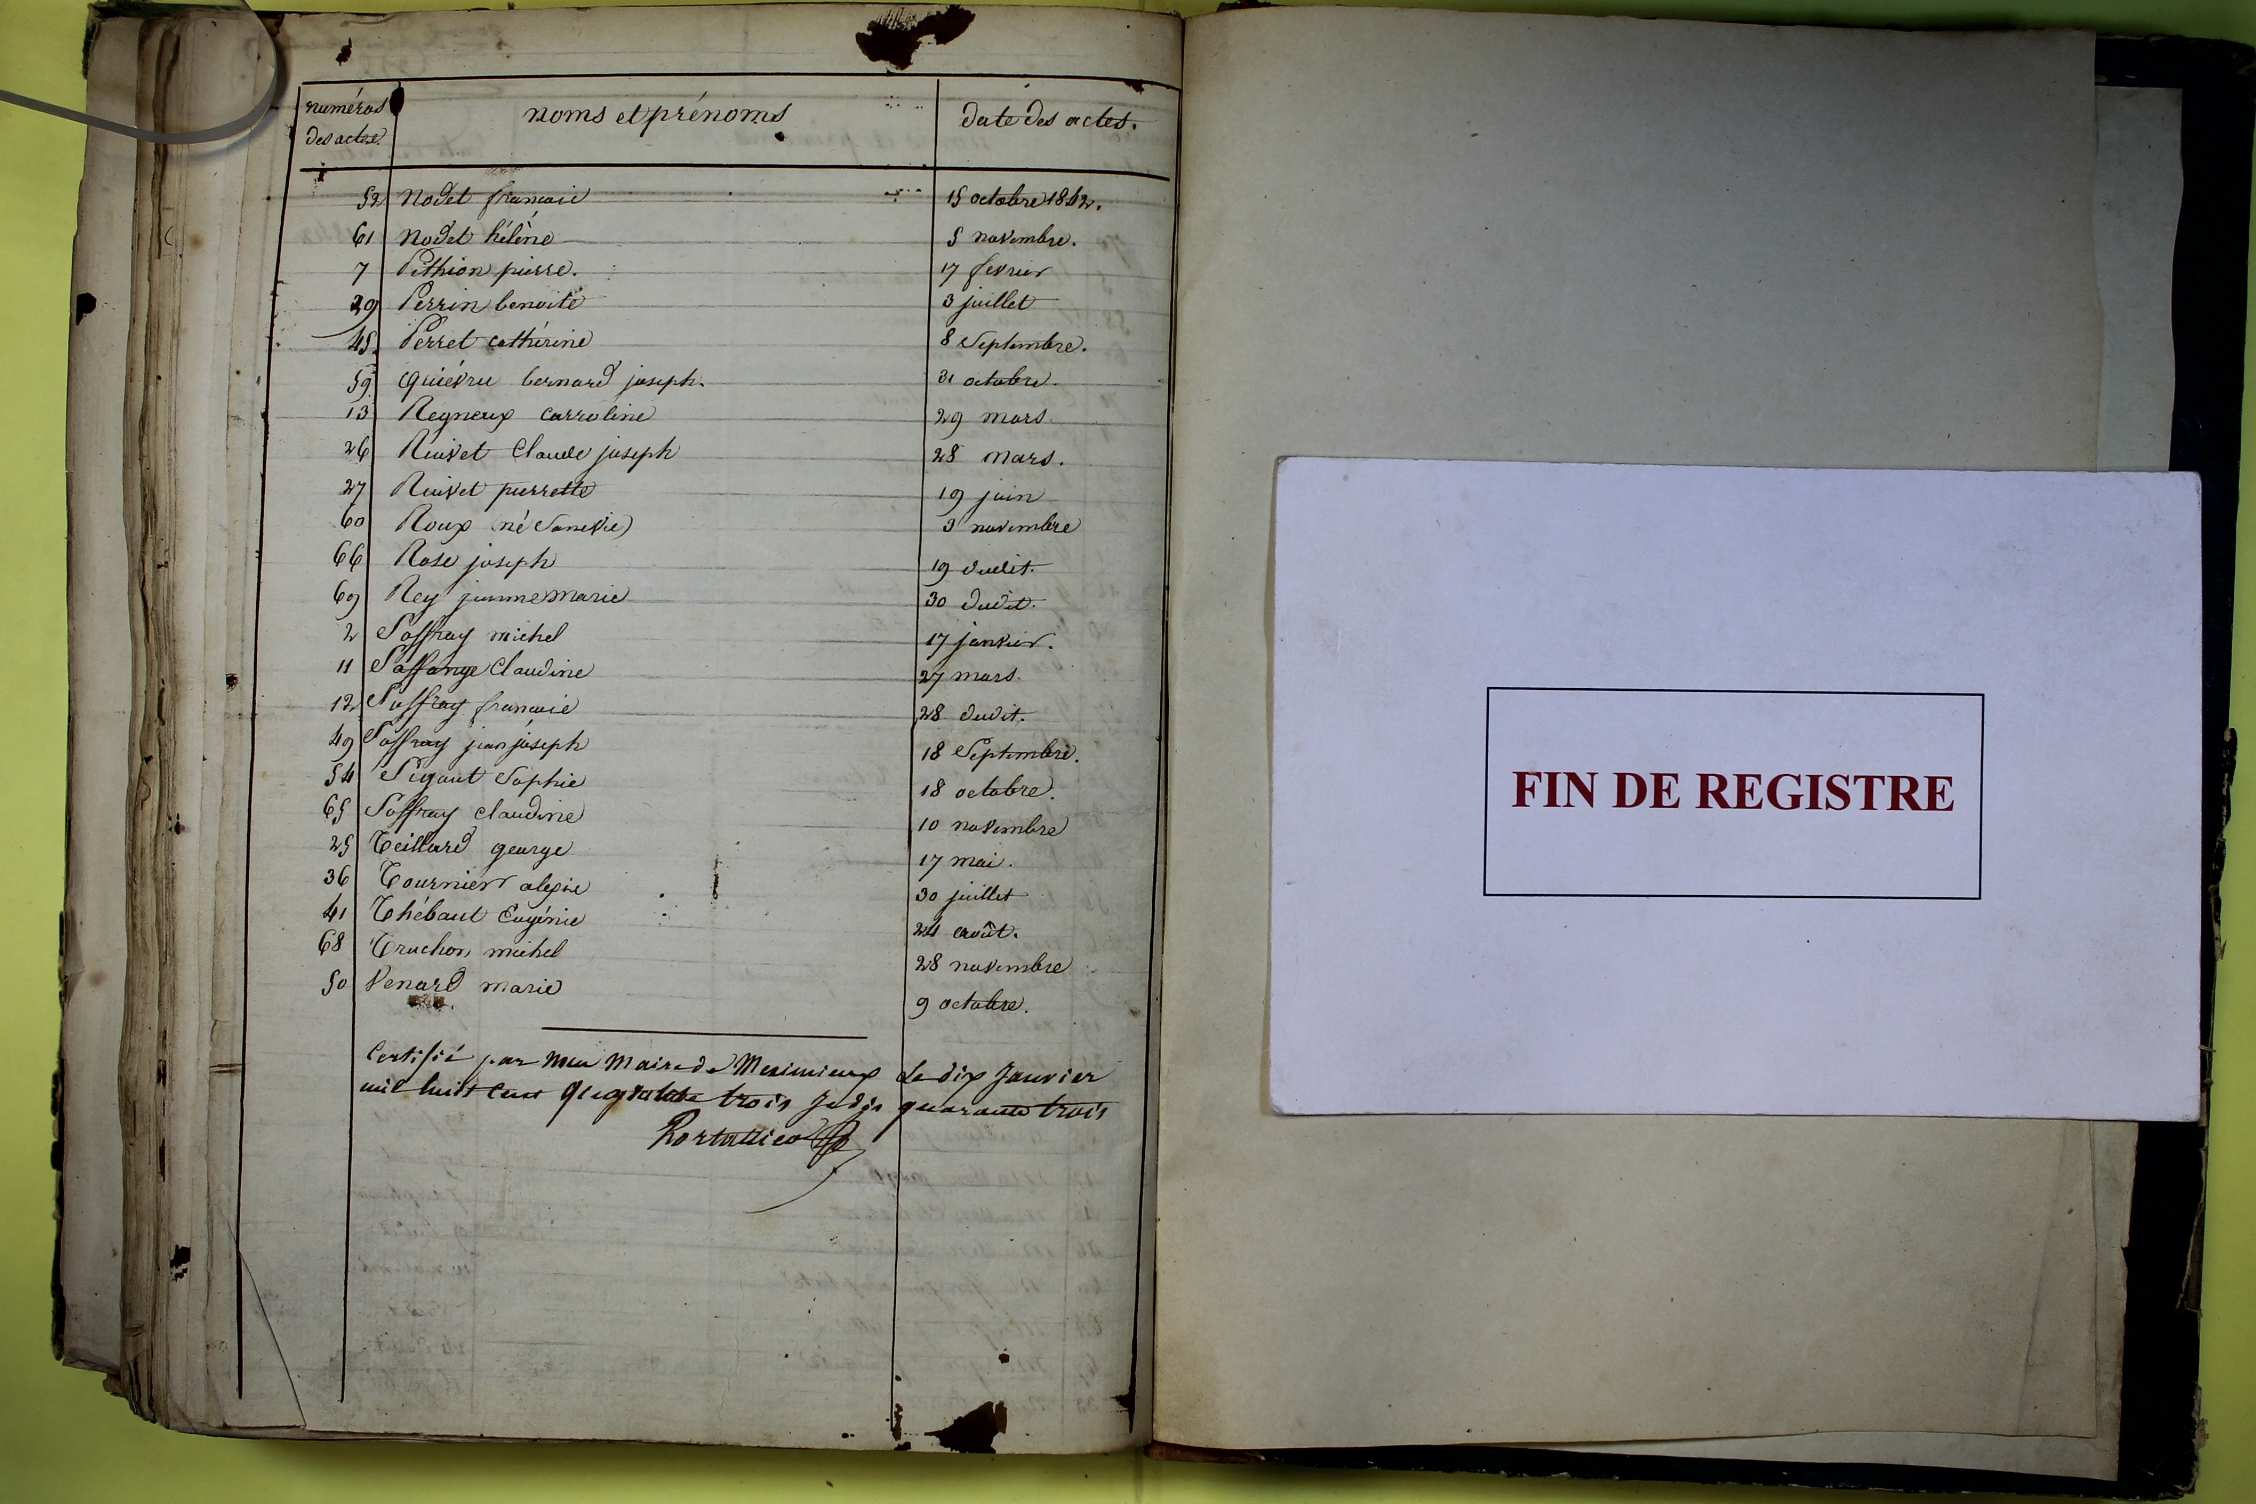 numéros
des actes.
noms et prénoms
date des actes.
52 Nodet francois 15 octobre 1842.
61 Nodet hélène 5 novembre.
7 Pithion pierre. 17 fevrier
29 Perrin benoite 3 juillet
45. Perret cathérine 8 Septembre.
59 quiévru bernard joseph. 31 octobre.
13 Regneux carroline 29 mars
26 Ruivet Claude joseph 28 mars.
27 Ruivet pierrette 19 juin
60 Roux (né 3 novembre
66 Rose joseph 19 dudit.
69 Rey jeanne marie 30 dudit.
2 Soffray michel 17 janvier.
11 Saffange Claudine 27 mars.
12 Soffray francois 28 dudit.
49 Soffray jean joseph 18 Septembre.
54 Sigaut Sophie 18 octobre.
65 Soffray claudine 10 novembre
25 Teillard george 17 mai.
36 Tournier alexie 30 juillet
41 Thébaut Eugénie 24 août.
68 Truchon michel 28 novembre
50 Venard marie 9 octobre.
Certifié par Maire de Meximieux Le dix Janvier
mil huit cent quarante trois quarante trois
Portallier
FIN DE REGISTRE